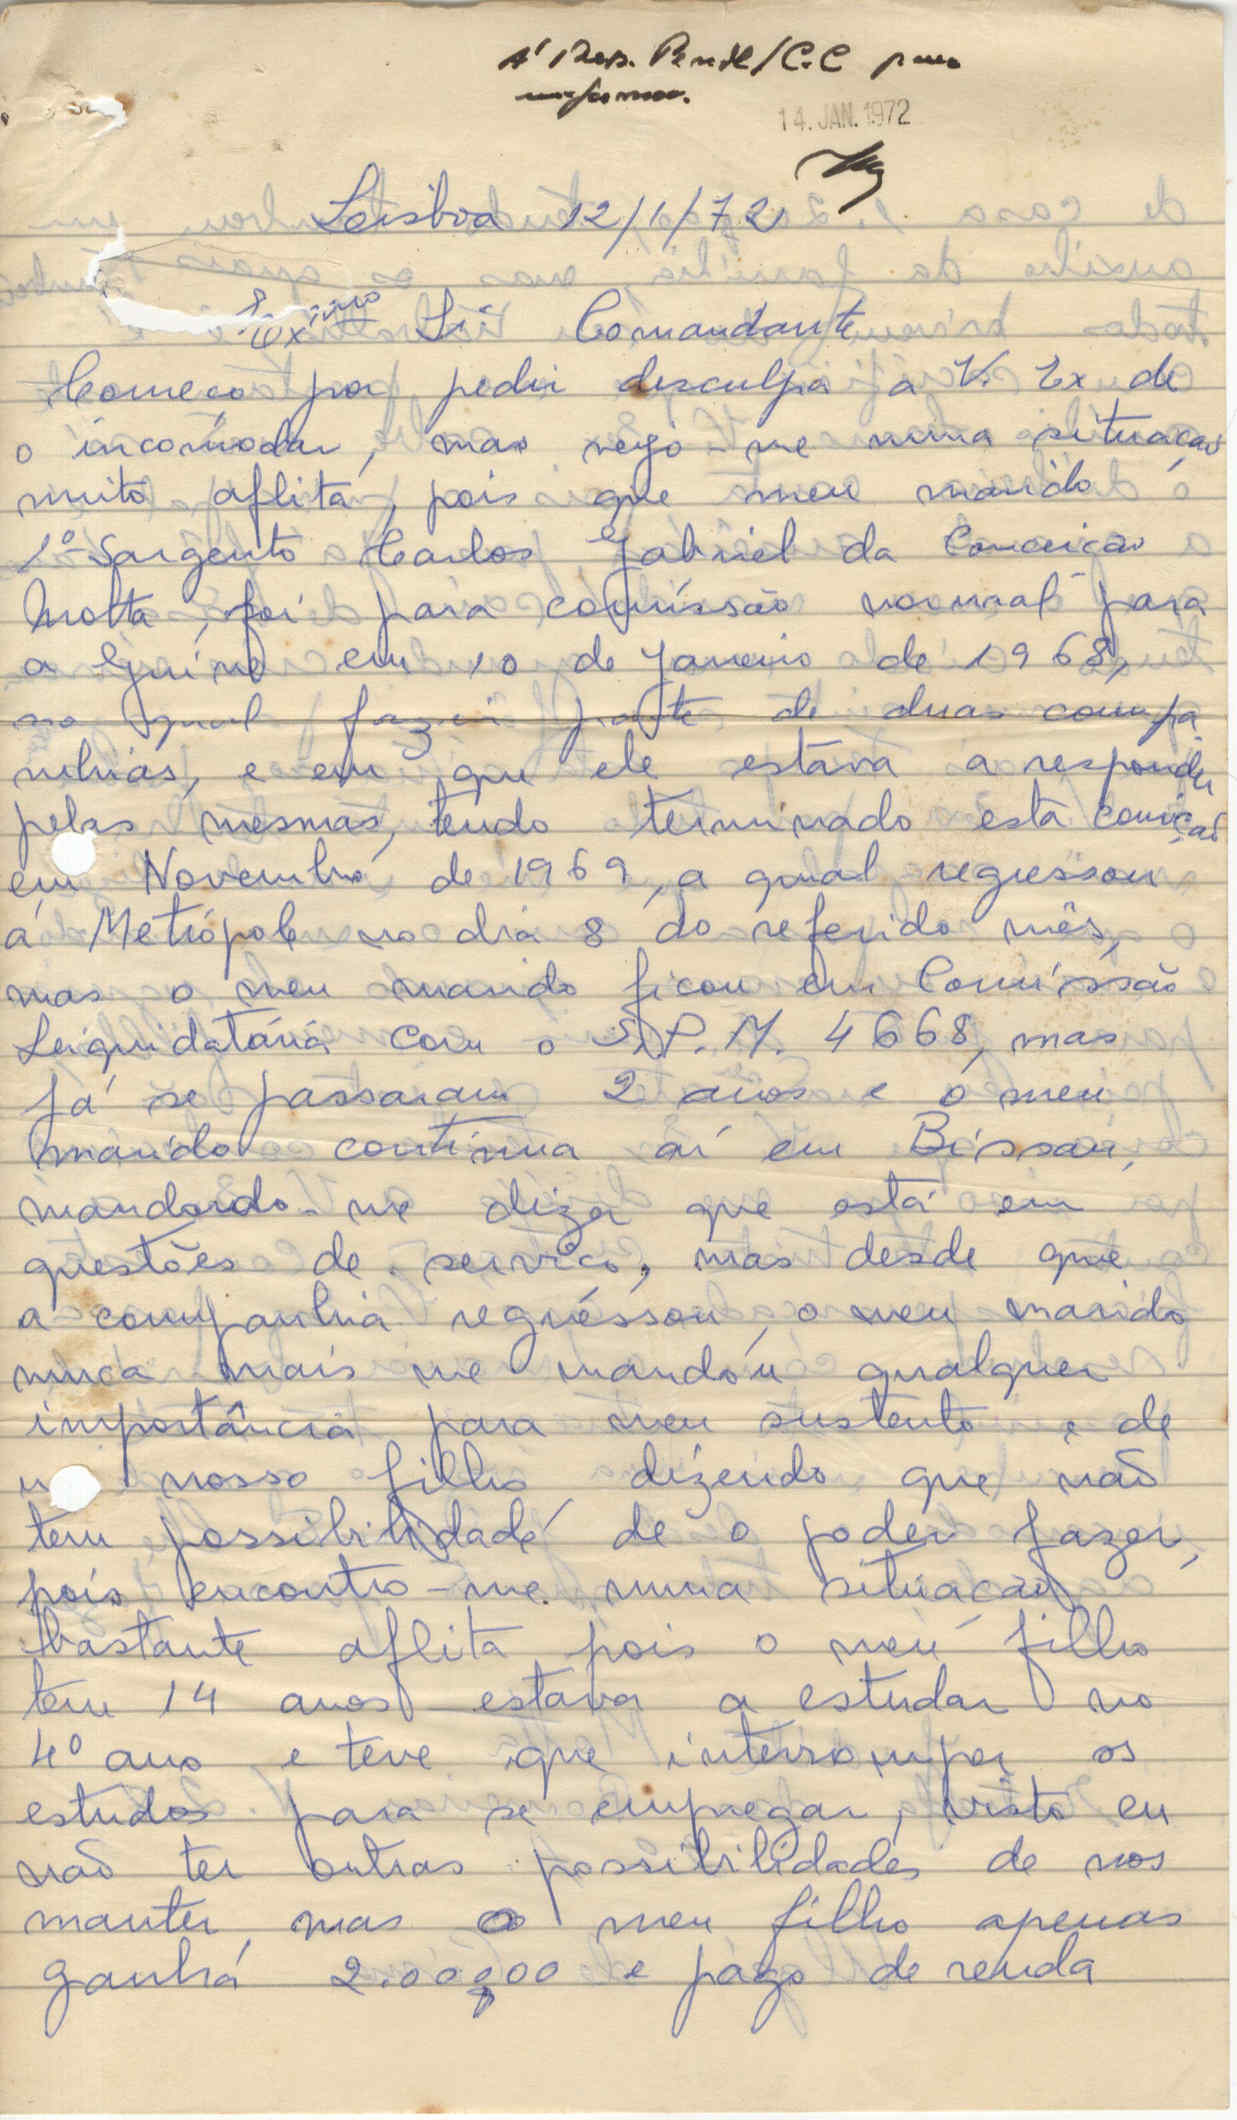 Á Rep. /C.C para
informar.
14. JAN. 1972
Leisboa 12/1/72
Exmo Sr Comandante
Começo por pedir desculpa a V. Ex de
o incomodar, mas vejo-me numa situaçao
muito aflita, pois que meu marido
1º Sargento Carlos Gabriel da Conceição
Motta, foi para comissão normal para
a Guiné em 10 de Janeiro de 1968,
no qual fazia parte de duas compa
nhias, e em que ele estava a responder
pelas mesmas, tendo terminado esta comiçao
em Novembro de 1969, a qual regressou
á Metrópole no dia 8 do referido mês,
mas o meu marido ficou em Comissão
Leiquidatária com o S.P.M. 4668, mas
já se passaram 2 anos e o meu
marido continua aí em Bissau,
mandando-me dizer que está em
questões de serviço, mas desde que
a companhia regréssou, o meu marido
nunca mais me mandou qualquer
importância para meu sustento e de
nosso filho dizendo que não
tem possibilidade de o poder fazer,
pois encontro-me numa situação
bastante aflita pois o meu filho
tem 14 anos estava a estudar no
4º ano e teve que interromper os
estudos para se empregar, visto eu
não ter outras possibilidades de nos
manter, mas o meu filho apenas
ganhá 2.00$00 e pago de renda